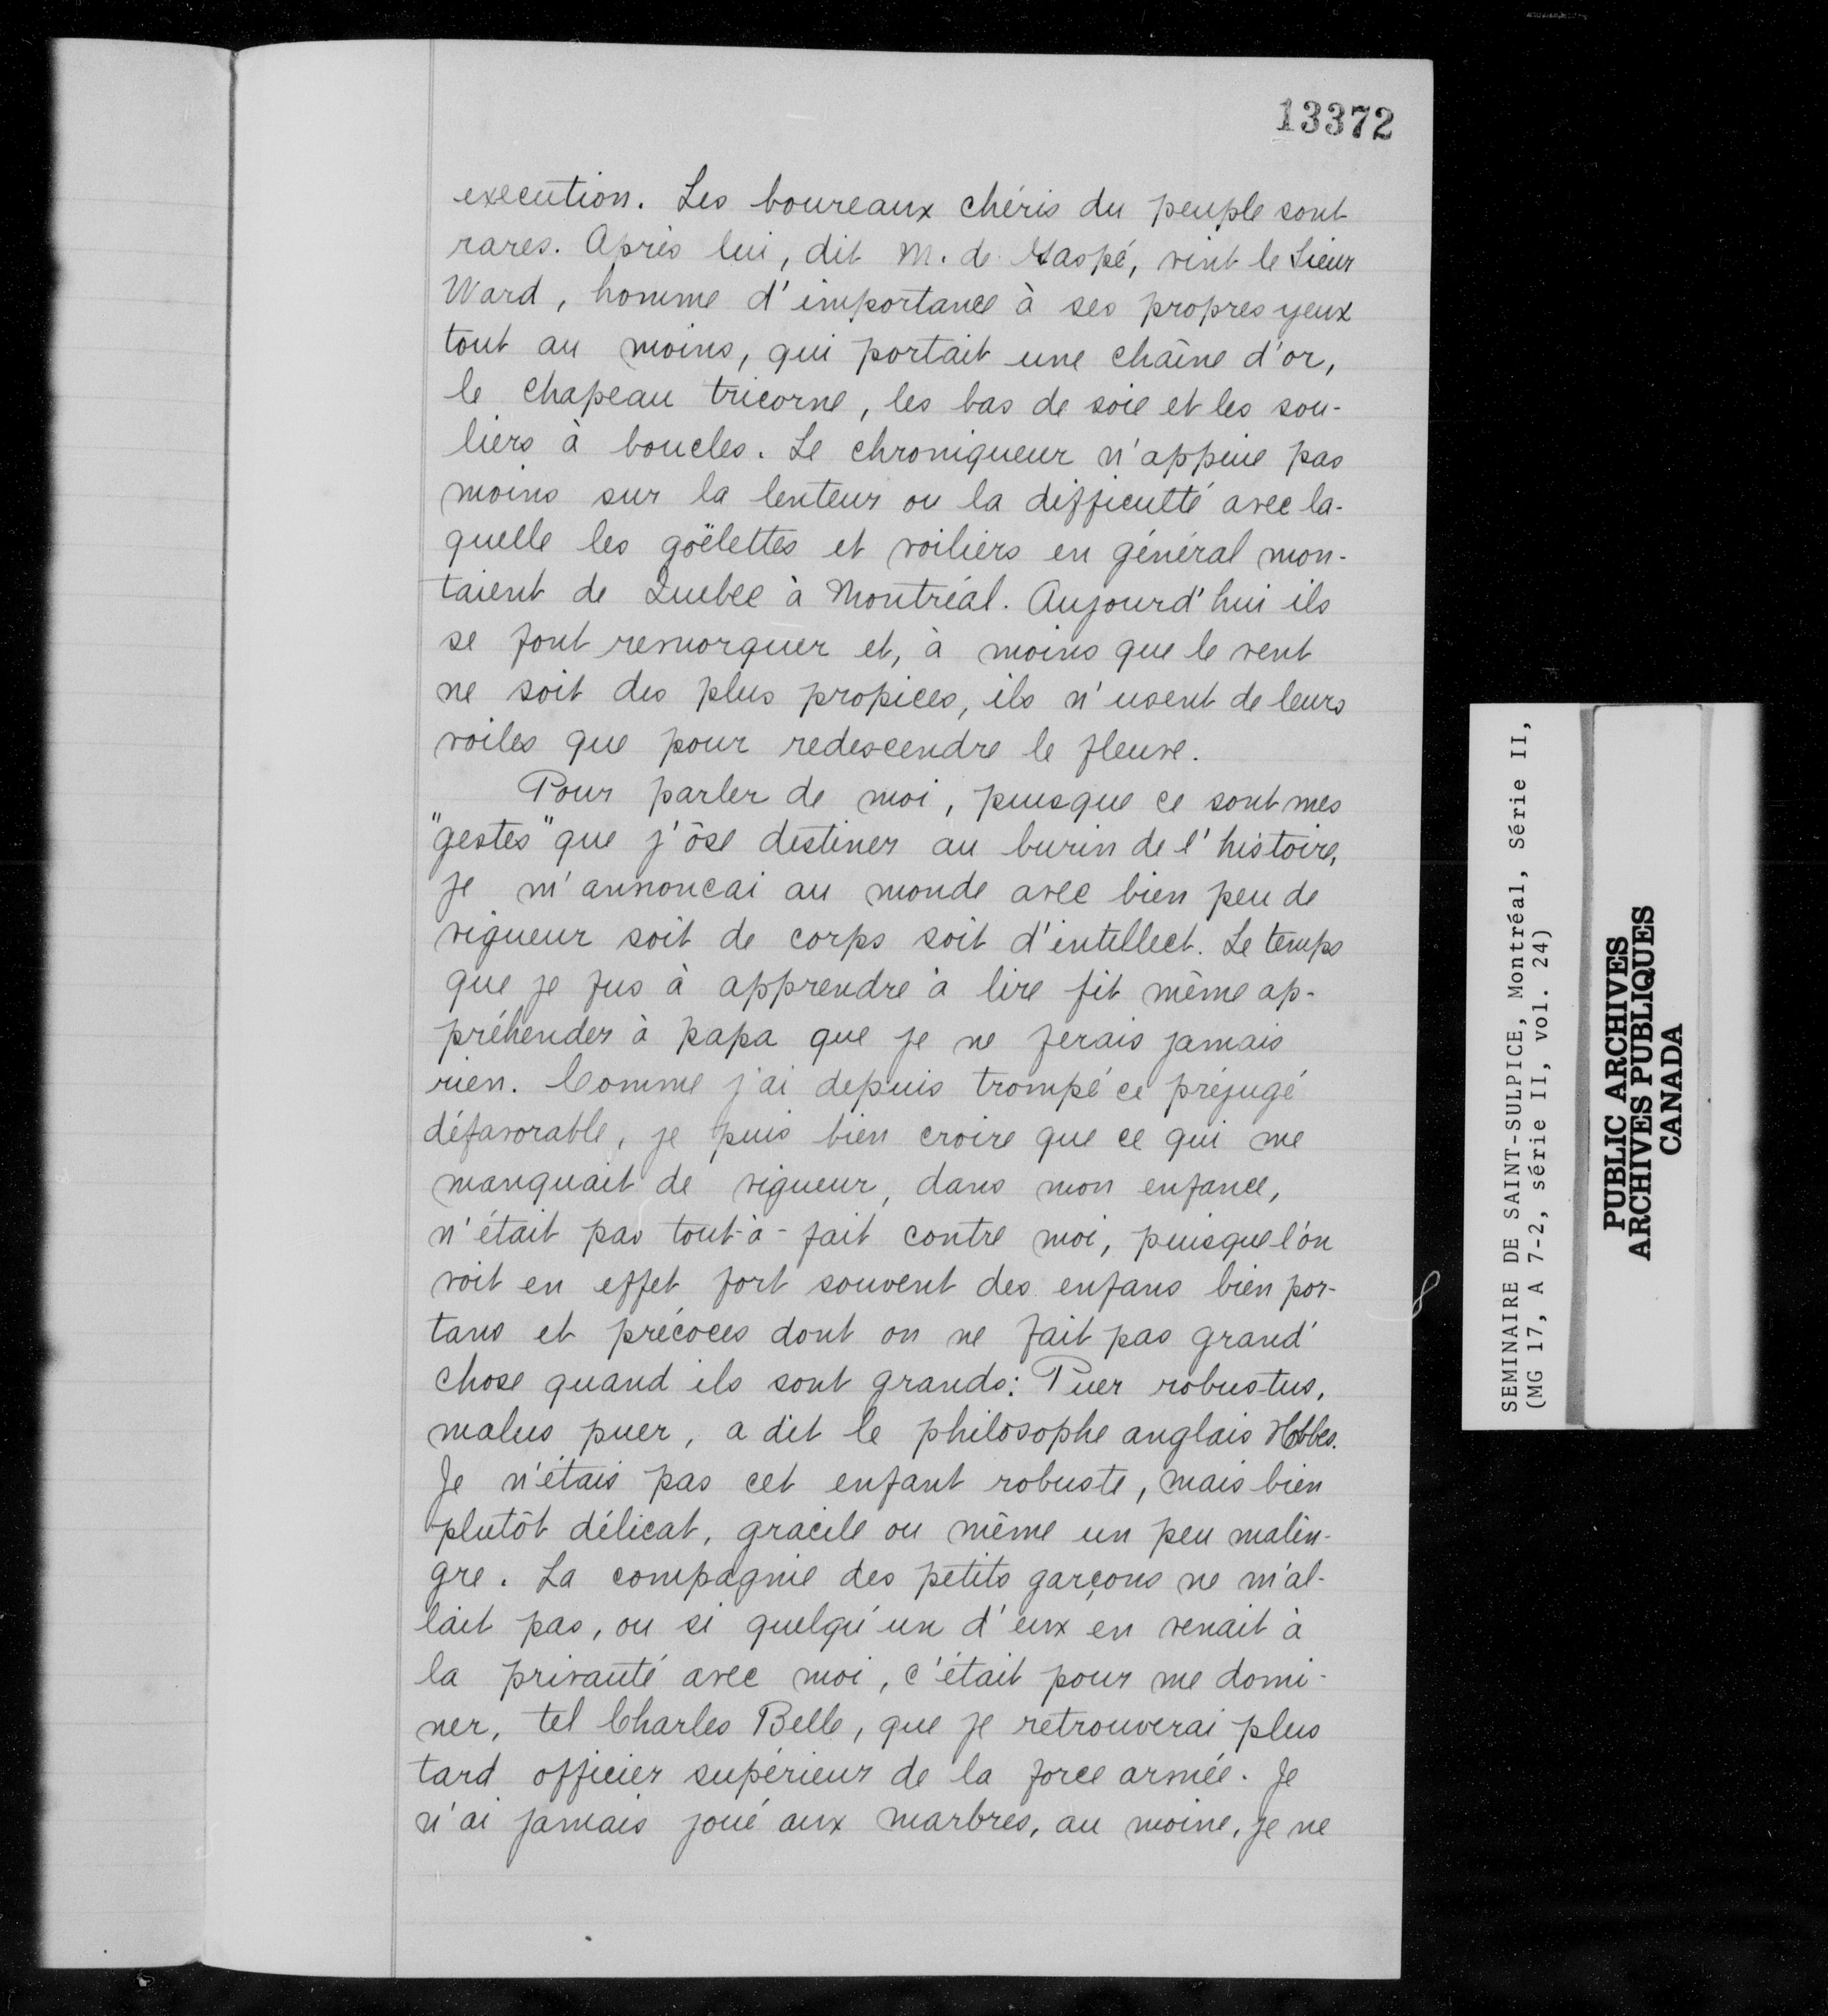 13372
execution. Les boureaux chéris du peuple sont
rares. Après lui, dit M. de Gaspé, vint le Sieur
Ward, homme d'importance à ses propres yeux
tout au moins, qui portait une chaîne d'or,
le chapeau tricorne, les bas de soie et les sou-
liers à boucles. Le chroniqueur n'appuie pas
moins sur la lenteur ou la difficulté avec la-
quelle les goëlettes et voiliers en général mon-
taient de Quebec à Montréal. Aujourd'hui ils
se font remorquer et, à moins que le vent
ne soit des plus propices, ils n'usent de leurs
voiles que pour redescendre le fleuve.
Pour parler de moi, puisque ce sont mes
"gestes" que j'ôse destiner au burin de l'histoire,
je m'annoncai au monde avec bien peu de
vigueur soit de corps soit d'intellect. Le temps
que je fus à apprendre à lire fit même ap-
préhender à papa que je ne ferais jamais
rien. Comme j'ai depuis trompé ce préjugé
défavorable, je puis bien croire que ce qui me
manquait de vigueur, dans mon enfance,
n'était pas tout-à-fait contre moi, puisque l'on
voit en effet fort souvent des enfans bien por-
tans et précoces dont on ne fait pas grand'
chose quand ils sont grands: Puer robustus,
malus puer, a dit le philosophe anglais Hobbes.
Je n'étais pas cet enfant robuste, mais bien
plutôt délicat, gracile ou même un peu malin-
gre. La compagnie des petits garçons ne m'al-
lait pas, ou si quelqu'un d'eux en venait à
la privauté avec moi, c'était pour me domi-
ner, tel Charles Belle, que je retrouverai plus
tard officier supérieur de la force armée. Je
n'ai jamais joué aux marbres, au moine, je ne
SEMINAIRE DE SAINT-SULPICE, Montréal, Série II,
(MG 17, A 7-2, série II, vol. 24)
PUBLIC ARCHIVES
ARCHIVES PUBLIQUES
CANADA